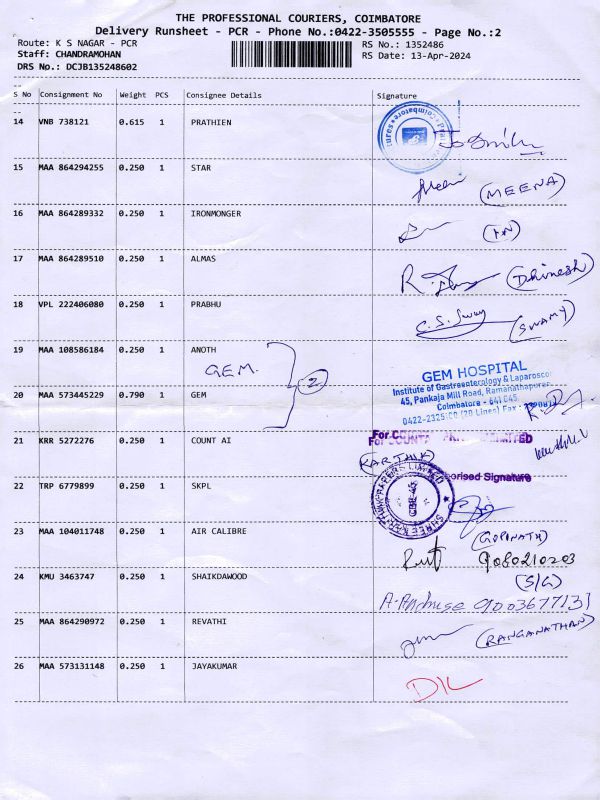 THE PROFESSIONAL COURIERS, COIMBATORE
Delivery Runsheet - PCR - Phone No.:0422-3505555 - Page No.:2
Route: K S NAGAR - PCR RS No.: 1352486
Staff: CHANDRAMOHAN RS Date: 13-Apr-2024
DRS No.: DCJB135248602
S No Consignment No Weight PCS Consignee Details Signature
14 VNB 738121 0.615 1 PRATHIEN
15 MAA 864294255 0.250 1 STAR (MEENA)
16 MAA 864289332 0.250 1 IRONMONGER
17 MAA 864289510 0.250 1 ALMAS (Dhinesh)
18 VPL 222406080 0.250 1 PRABHU C.S. Swamy (SWAMY)
19 MAA 108586184 0.250 1 ANOTH
GEM. 2
GEM HOSPITAL
Institute of Gastroenterology & Laparoscop
45, Pankaja Mill Road, Ramanathapuram
Coimbatore - 641 045.
20 MAA 573445229 0.790 1 GEM
21 KRR 5272276 0.250 1 COUNT AI
(KARTHIK)
orised Signature
22 TRP 6779899 0.250 1 SKPL
23 MAA 104011748 0.250 1 AIR CALIBRE (GOPINATH)
9080210203
24 KMU 3463747 0.250 1 SHAIKDAWOOD (S/G)
25 MAA 864290972 0.250 1 REVATHI (RANGANATHAN)
26 MAA 573131148 0.250 1 JAYAKUMAR
DIL